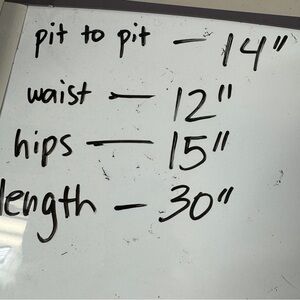 pit to pit — 14"
waist — 12"
hips — 15"
length — 30"